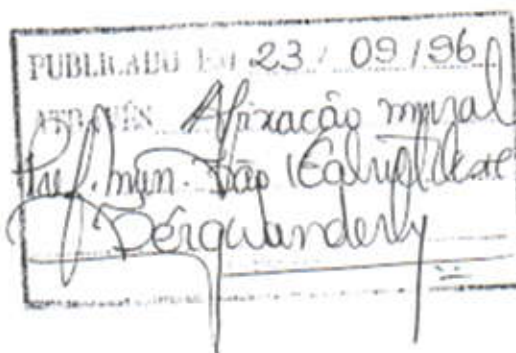 PUBLICADO EM 23 / 09 / 96
ATRAVÉS Afixação mural
Pref. mun. São Gabriel